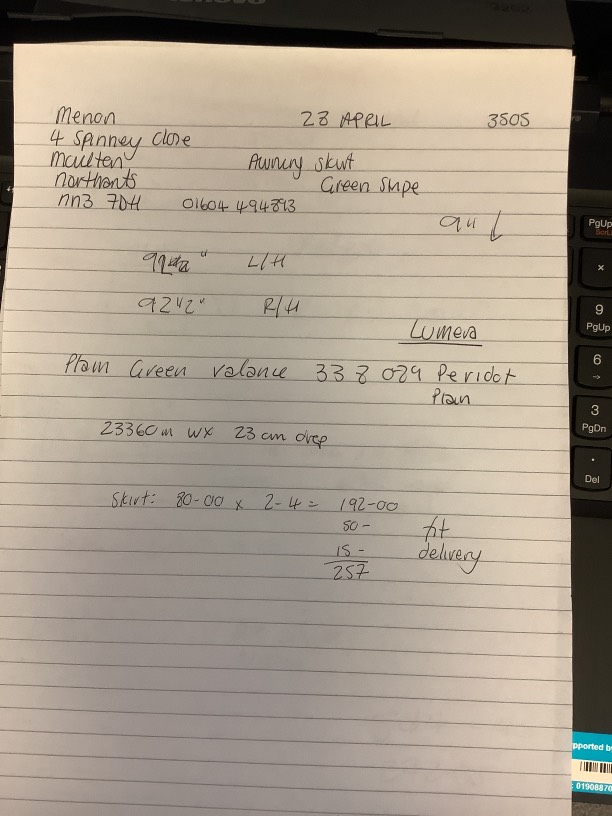 Menon 23 APRIL 3505
4 Spinney Close
Moulton Awning skirt
Northants Green Stripe
NN3 7DH 01604 494893
9" ↓
L/H
92 1/2" R/H
Lumera
Plain Green valance 338 029 Peridot
Plain
23360m W x 23 cm drop
Skirt: 80-00 x 2-4 = 192-00
50- fit
15- delivery
257
PgUp
9
PgUp
6
→
3
PgDn
.
Del
pported b
01908870